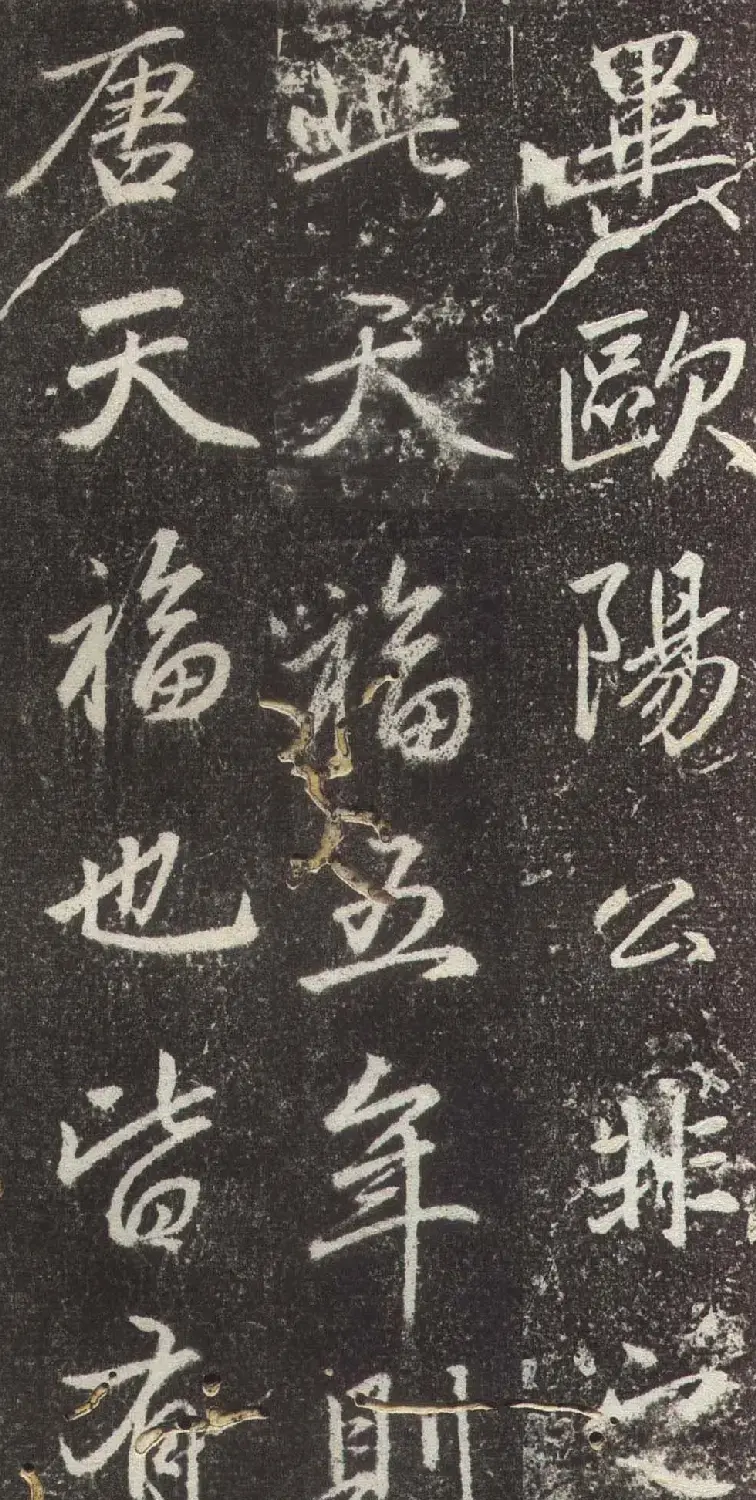 異歐陽公非之
與天福五年則
唐天福也皆有